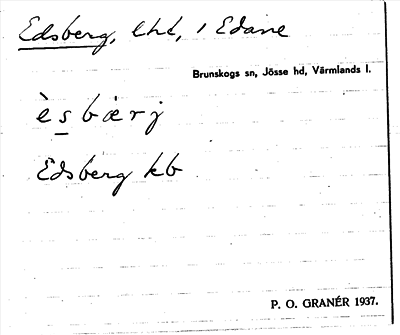 Edsberg, lht, i Edane
Brunskogs sn, Jösse hd, Värmlands l.
è s b æ r j
Edsberg kb
P. O. GRANÉR 1937.